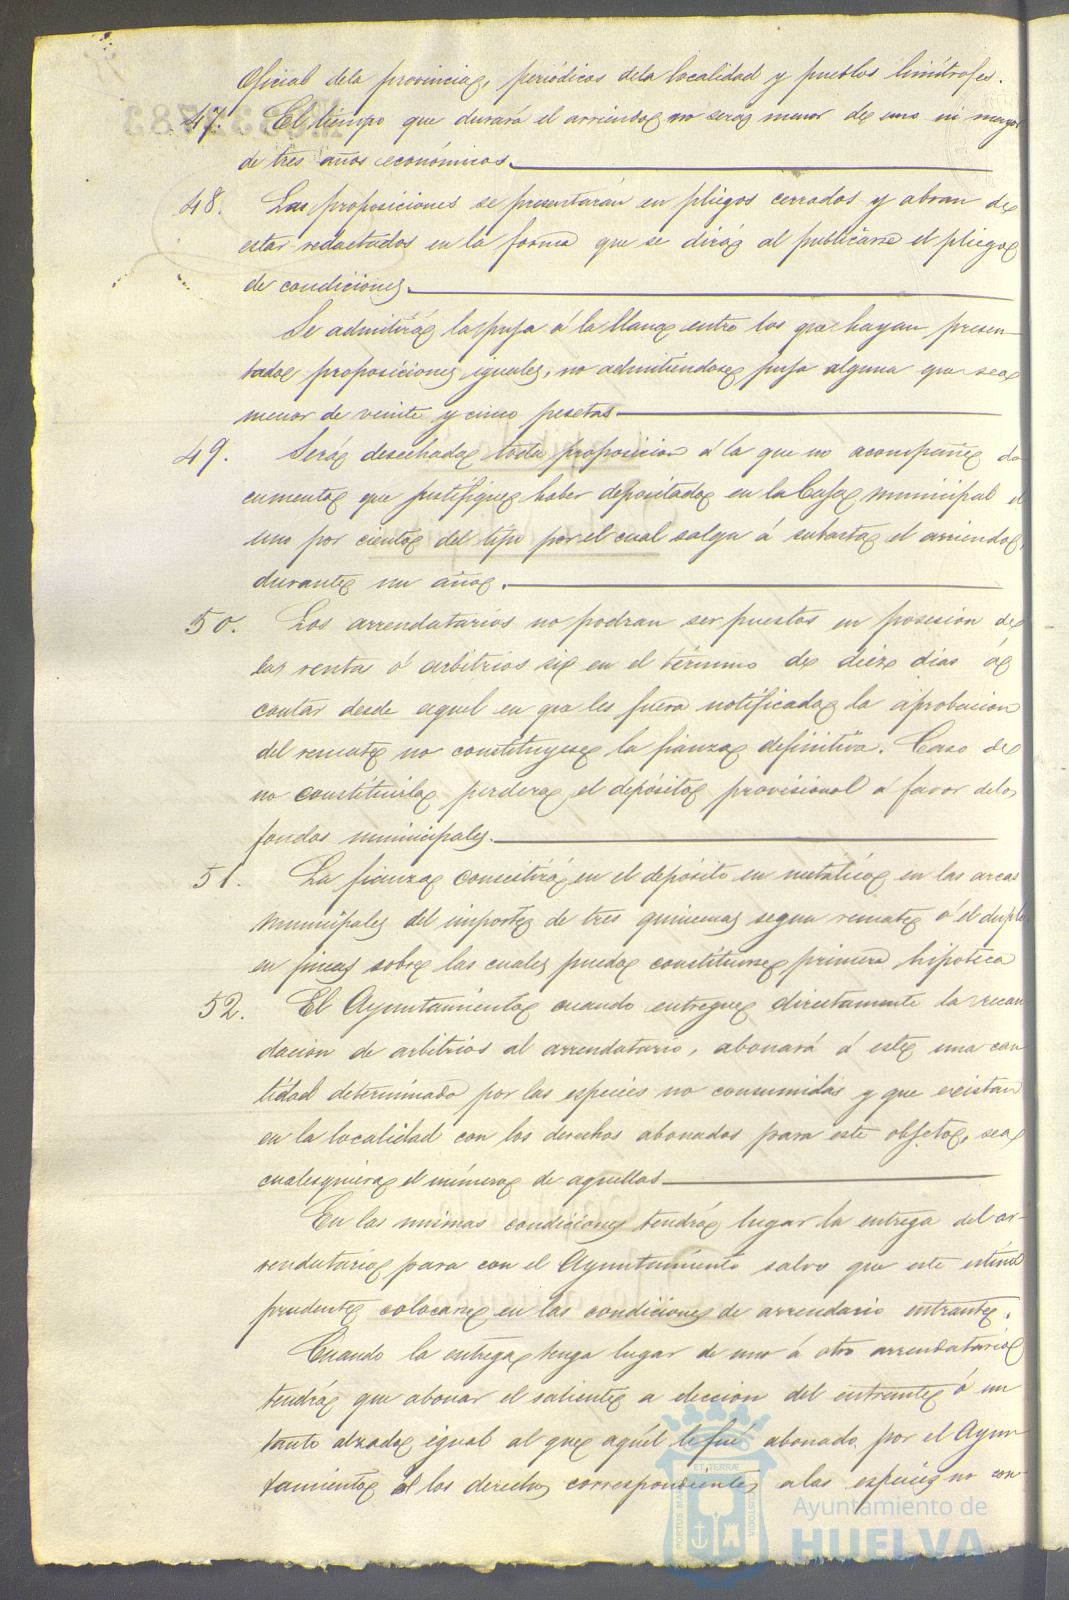 Oficial dela provincia, periódicos dela localidad y pueblos limítrofes.
47. El tiempo que durará el arriendo no será menor de uno ni mayor
de tres años económicos.
48. Las proposiciones se presentarán en pliegos cerrados y abran de
estar redactados en la forma que se dirá al publicarse el pliego
de condiciones.
Se admitirá la puja á la llana entre los que hayan presen-
tado proposiciones iguales, no admitiéndose puja alguna que sea
menor de veinte y cinco pesetas.
49. Será desechada toda proposicion á la que no acompañe do
cumento que justifique haber depositado en la Caja municipal el
uno por ciento del tipo por el cual salga á subasta el arriendo,
durante un año.
50. Los arrendatarios no podran ser puestos en posesión de
las rentas ó arbitrios si en el término de diez dias á
contar desde aquel en que les fuera notificada la aprobacion
del remate no constituyese la fianza definitiva. Caso de
no constituirla perdera el depósito provisional á favor delos
fondos municipales.
51. La fianza consistirá en el depósito en metálico en las arcas
municipales del importe de tres quincenas segun remate ó el duplo
en fincas sobre las cuales pueda constituirse primera hipoteca
52. El Ayuntamiento cuando entregue directamente la recau
dacion de arbitrios al arrendatario, abonará á este una can
tidad determinada por las especies no consumidas y que existan
en la localidad con los derechos abonados para este objeto, sea
cualesquiera el número de aquellas
En las mismas condiciones tendrá lugar la entrega del ar-
rendatario para con el Ayuntamiento salvo que este estime
prudente colocarse en las condiciones de arrendario entrante.
Cuando la entrega tenga lugar de uno á otro arrendatario
tendrá que abonar el saliente a eleccion del entrante ó un
tanto alzado igual al que aquél le fué abonado por el Ayun
tamiento ó los derechos correspondientes alas especies no con
ET TERRÆ
PORTUS MARIS
CUSTODIA
Ayuntamiento de
HUELVA